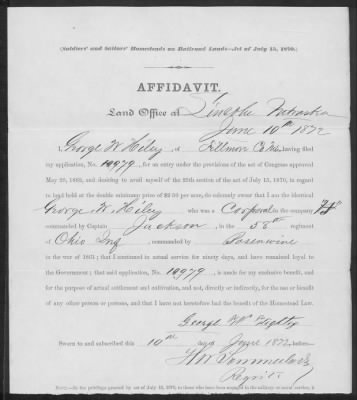 (Soldiers' and Sailors' Homesteads on Railroad Lands—Act of July 15, 1870.)
AFFIDAVIT.
Land Office at Lincoln Nebraska
June 10th 1872
I, George W. Hiley, of Fillmore Co Neb, having filed
my application, No. 10979, for an entry under the provisions of the act of Congress approved
May 20, 1862, and desiring to avail myself of the 25th section of the act of July 15, 1870, in regard
to land held at the double minimum price of $2.50 per acre, do solemnly swear that I am the identical
George W. Hiley who was a Corporal in the company "H"
commanded by Captain Jackson, in the 58th regiment
of Ohio Inf, commanded by
the war of 1861; that I continued in actual service for ninety days, and have remained loyal to
the Government; that said application, No. 10979, is made for my exclusive benefit, and
for the purpose of actual settlement and cultivation, and not, directly or indirectly, for the use or benefit
of any other person or persons, and that I have not heretofore had the benefit of the Homestead Law.
George W.
Sworn to and subscribed this 10th day June 1872 before
Register
NOTE.—In the privilege granted by act of July 15, 1870, to those who have been engaged in the military or naval service, it